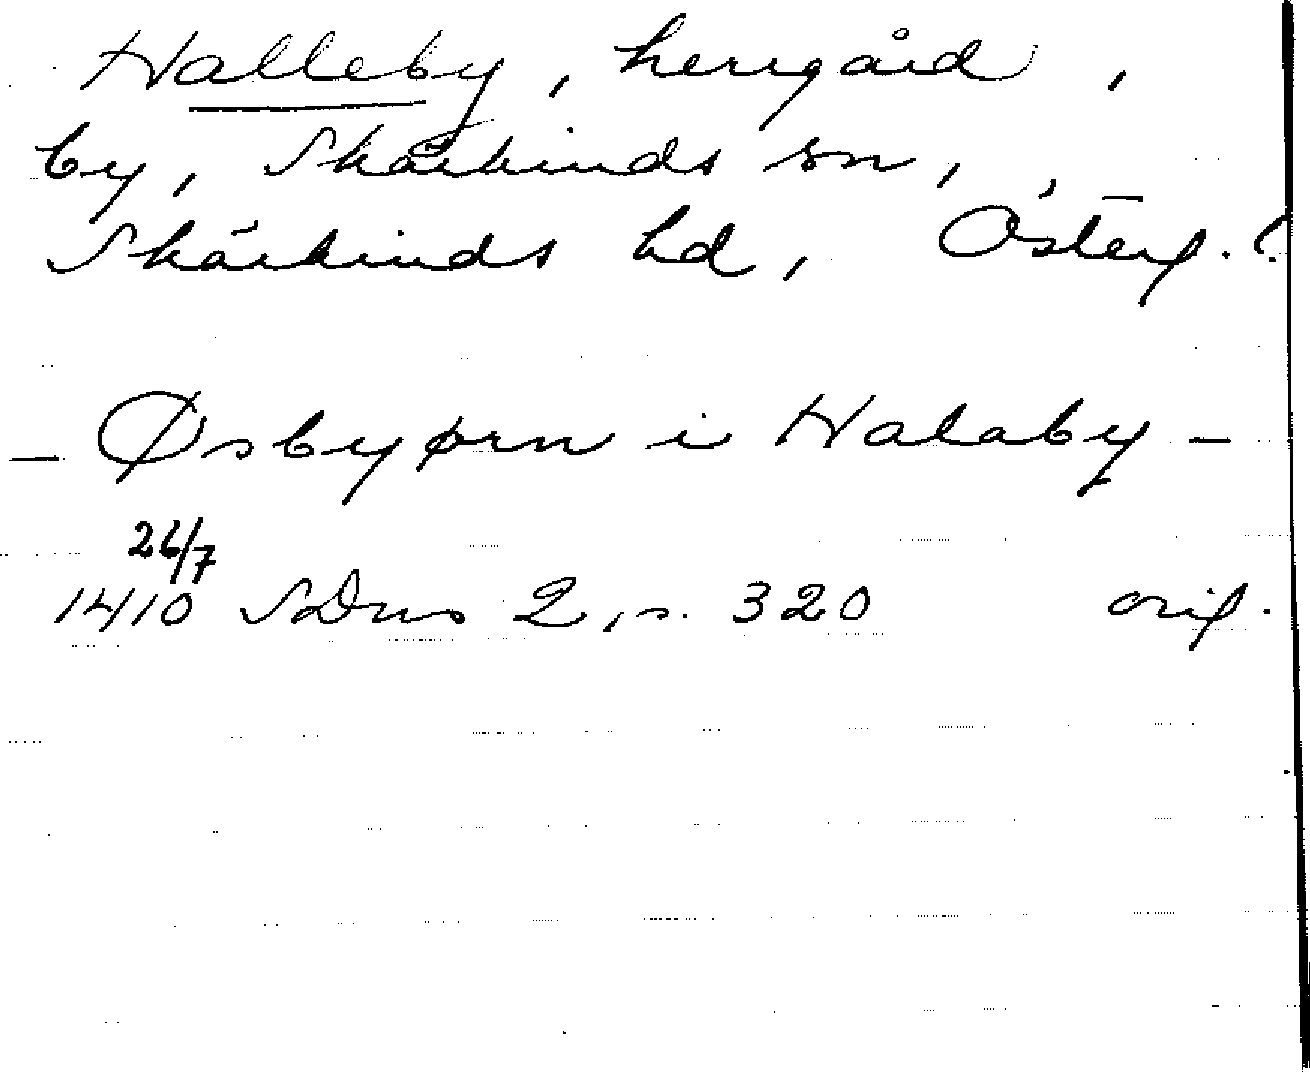 Halleby, herrgård,
by, Skärkinds sn,
Skärkinds hd, Österg. l.
- Øsbyørn i Halaby -
26/7
1410 SDns 2, s. 320 orig.